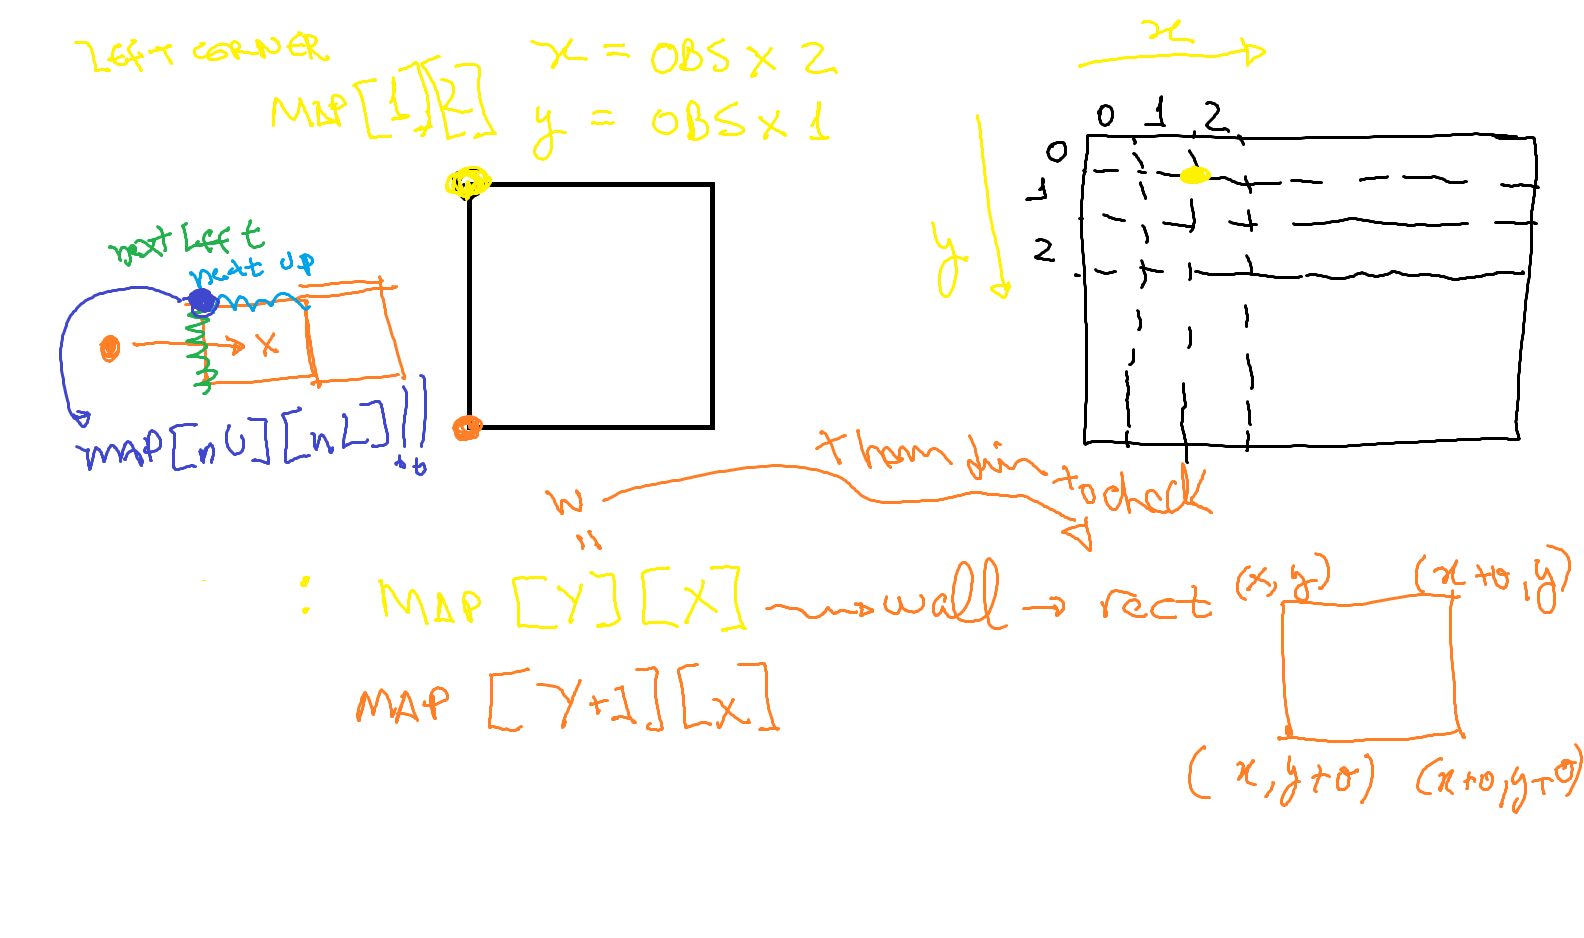 LEFT CORNER
MAP[1][2]
x = OBS x 2
y = OBS x 1
x
0 1 2
0
1
2
y
next Left
next up
x
MAP[nU][nL]!!
W
"
to check
: MAP [Y][X] → wall → rect
MAP [Y+1][X]
(x,y)
(x+o,y)
(x,y+o)
(x+o,y+o)